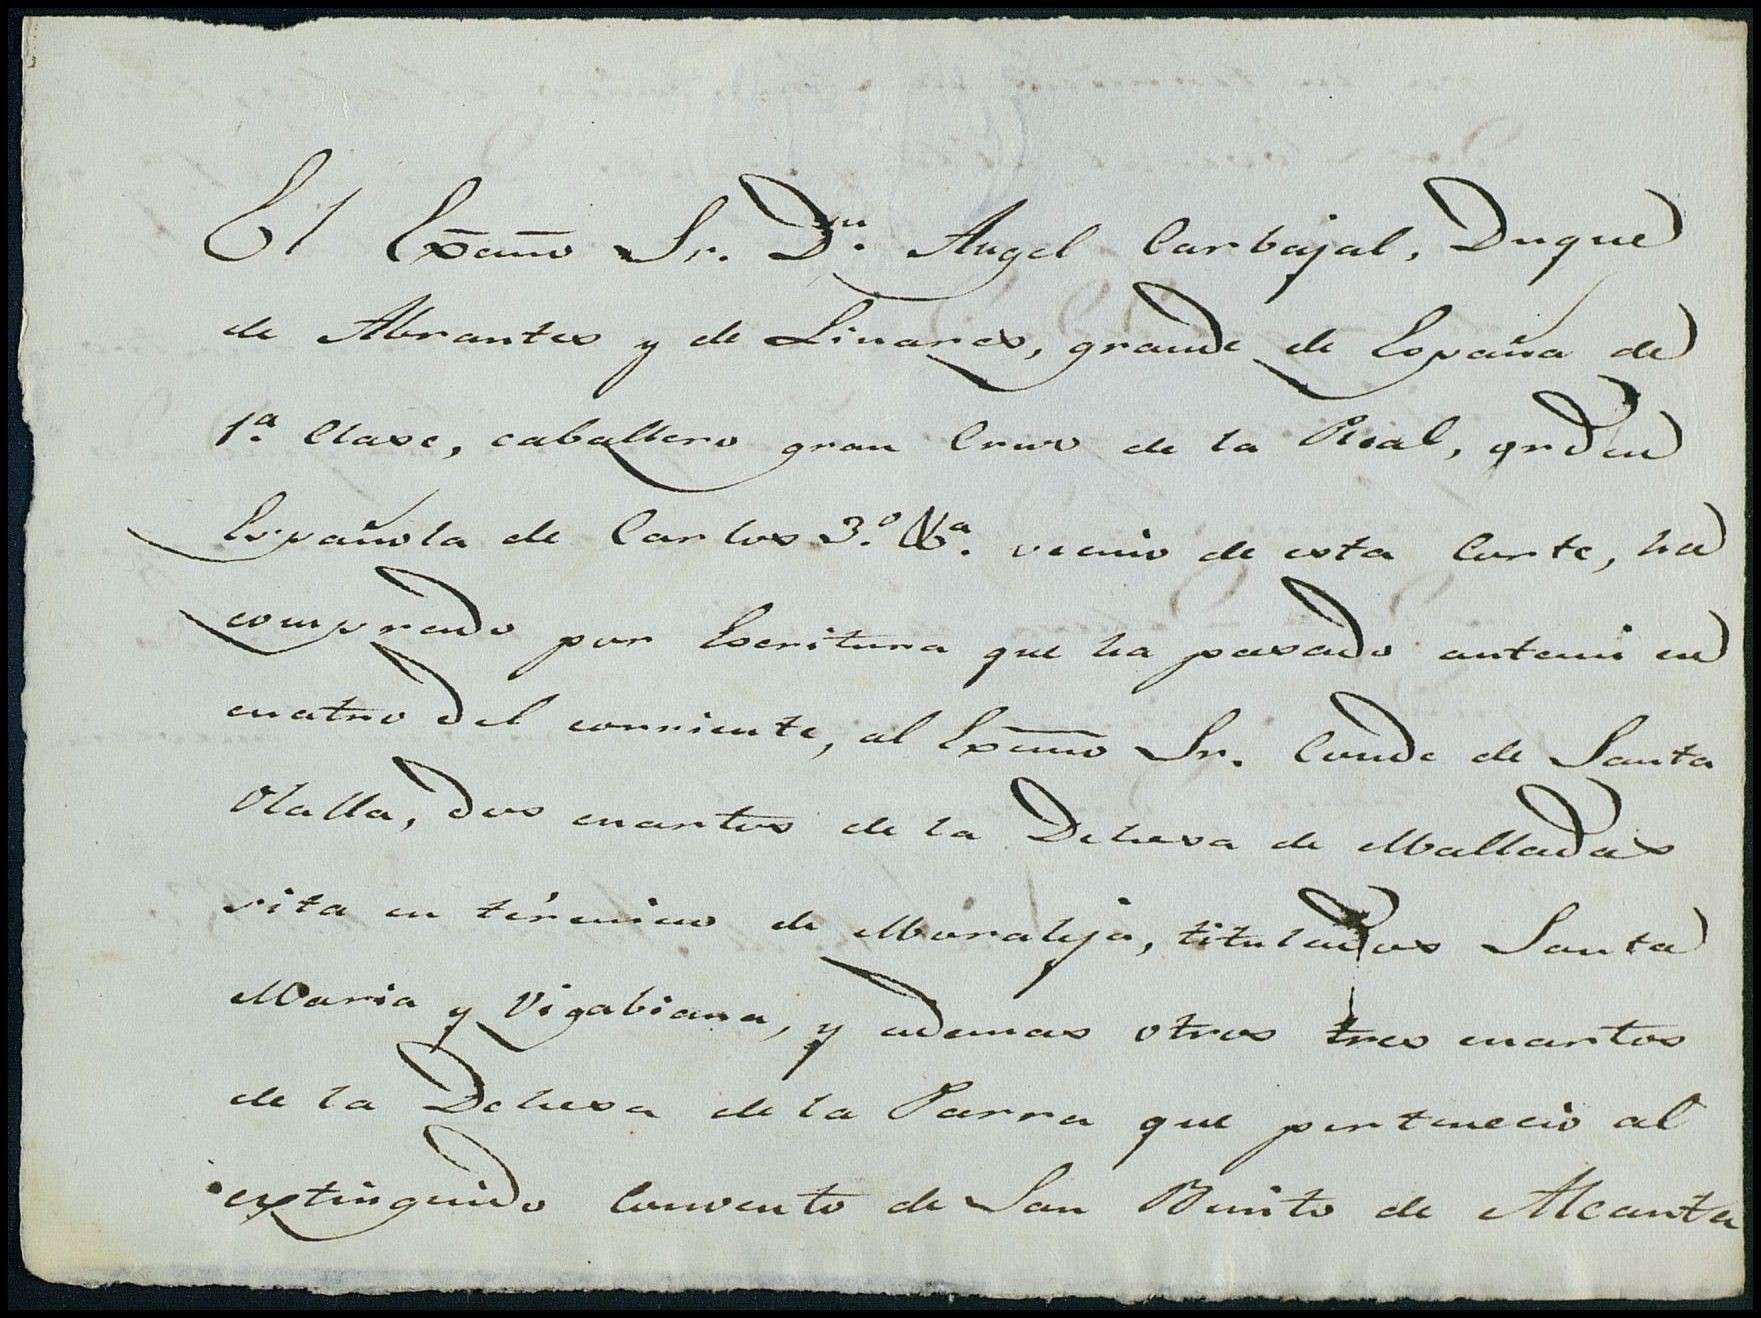 El Exc̄mo Sr. Dn. Angel Carbajal, Duque
de Abrantes y de Linares, grande de España de
1ª. Clase, caballero gran Cruz de la Real, orden
Española de Carlos 3.º &ª. vecino de esta Corte, ha
comprado por Escritura que ha pasado antemi en
cuatro del corriente, al Exc̄mo Sr. Conde de Santa
Olalla, dos cuartos de la Dehesa de Malladas
sita en término de Moraleja, titulados Santa
Maria y Vigabiana, y ademas otros tres cuartos
de la Dehesa de la Parra que perteneció al
extinguido Convento de San Benito de Alcanta